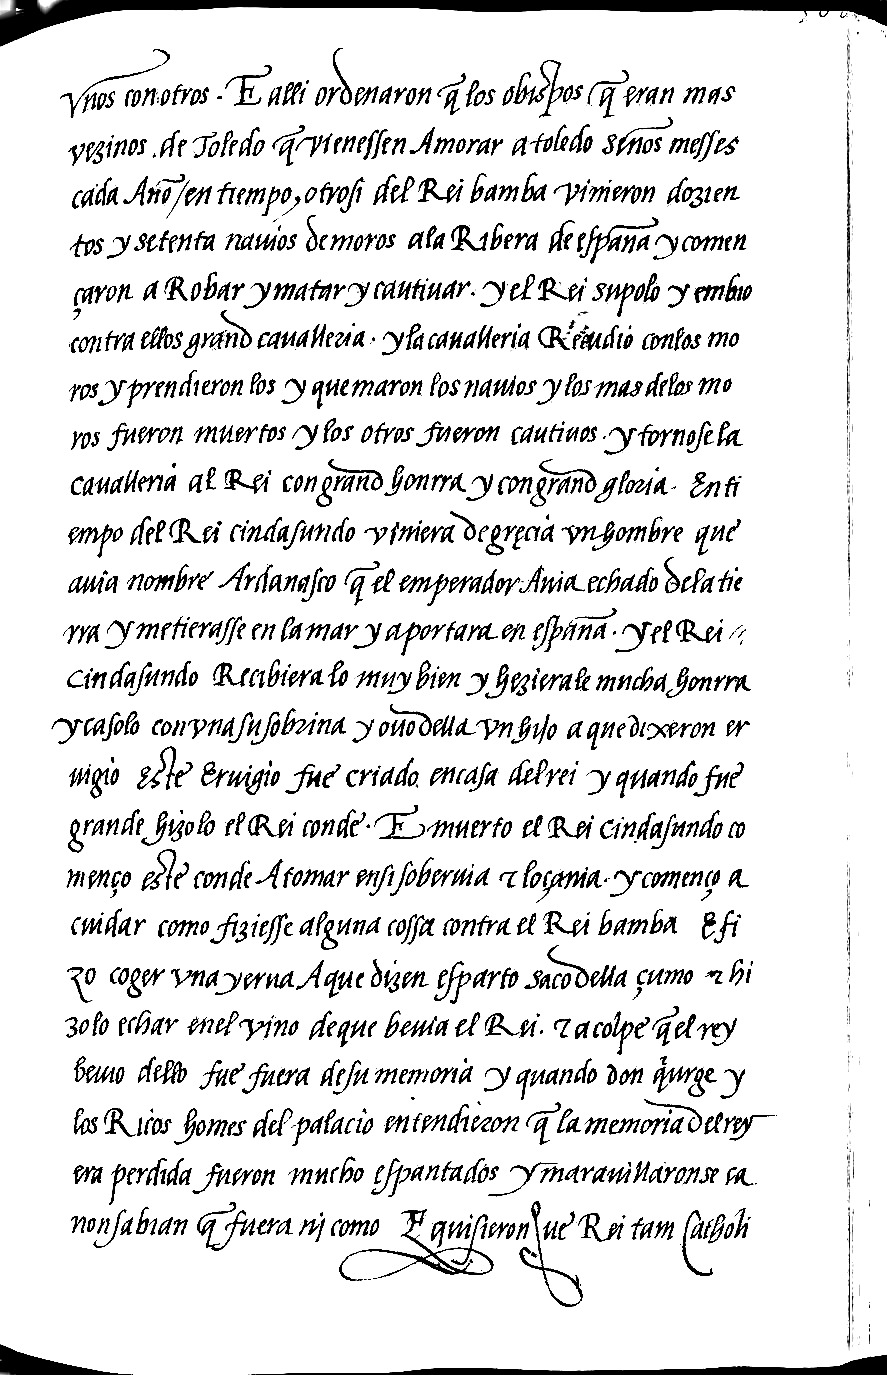 vnos con otros. E alli ordenaron q̃ los obispos q̃ eran mas
vezinos de Toledo q̃ viniessen Amorar a toledo seños messes
cada Año / en tiempo, otrosi del Rei bamba vinieron dozien
tos y setenta nauios de moros ala Ribera de españa y comen
çaron a Robar y matar y cautiuar. y el Rei supolo y embio
contra ellos grand caualleria. y la caualleria Reaudio con los mo
ros y prendieron los y quemaron los nauios y los mas delos mo
ros fueron muertos y los otros fueron cautiuos. y tornose la
caualleria al Rei con grand honrra y con grand gloria. En ti
empo del Rei cindasundo viniera de greçia vn hombre que
auia nombre Ardanasco q̃ el emperador Auia echado dela tie
rra y metierasse en la mar y aportara en españa. y el Rei
Cindasundo Recibiera lo muy bien y hezierale mucha honrra
y casolo con vna su sobrina y ouo della vn hijo a que dixeron er
uigio Este Eruigio fue criado en casa del rei y quando fue
grande hizo lo el Rei conde. E muerto el Rei cindasundo co
menço este conde A tomar en si soberuia τ loçania. y començo a
cuidar como fiziesse alguna cossa contra el Rei bamba E fi
zo coger vna yerua A que dizen esparto saco della çumo τ hi
zolo echar en el vino de que beuia el Rei. τ a colpe q̃ el rey
beuio dello fue fuera de su memoria y quando don q̃urge y
los Ricos homes del palacio entendieron q̃ la memoria del rey
era perdida fueron mucho espantados y marauillaronse ca
non sabian q̃ fuera nj como E quisieron que Rei tam catholi